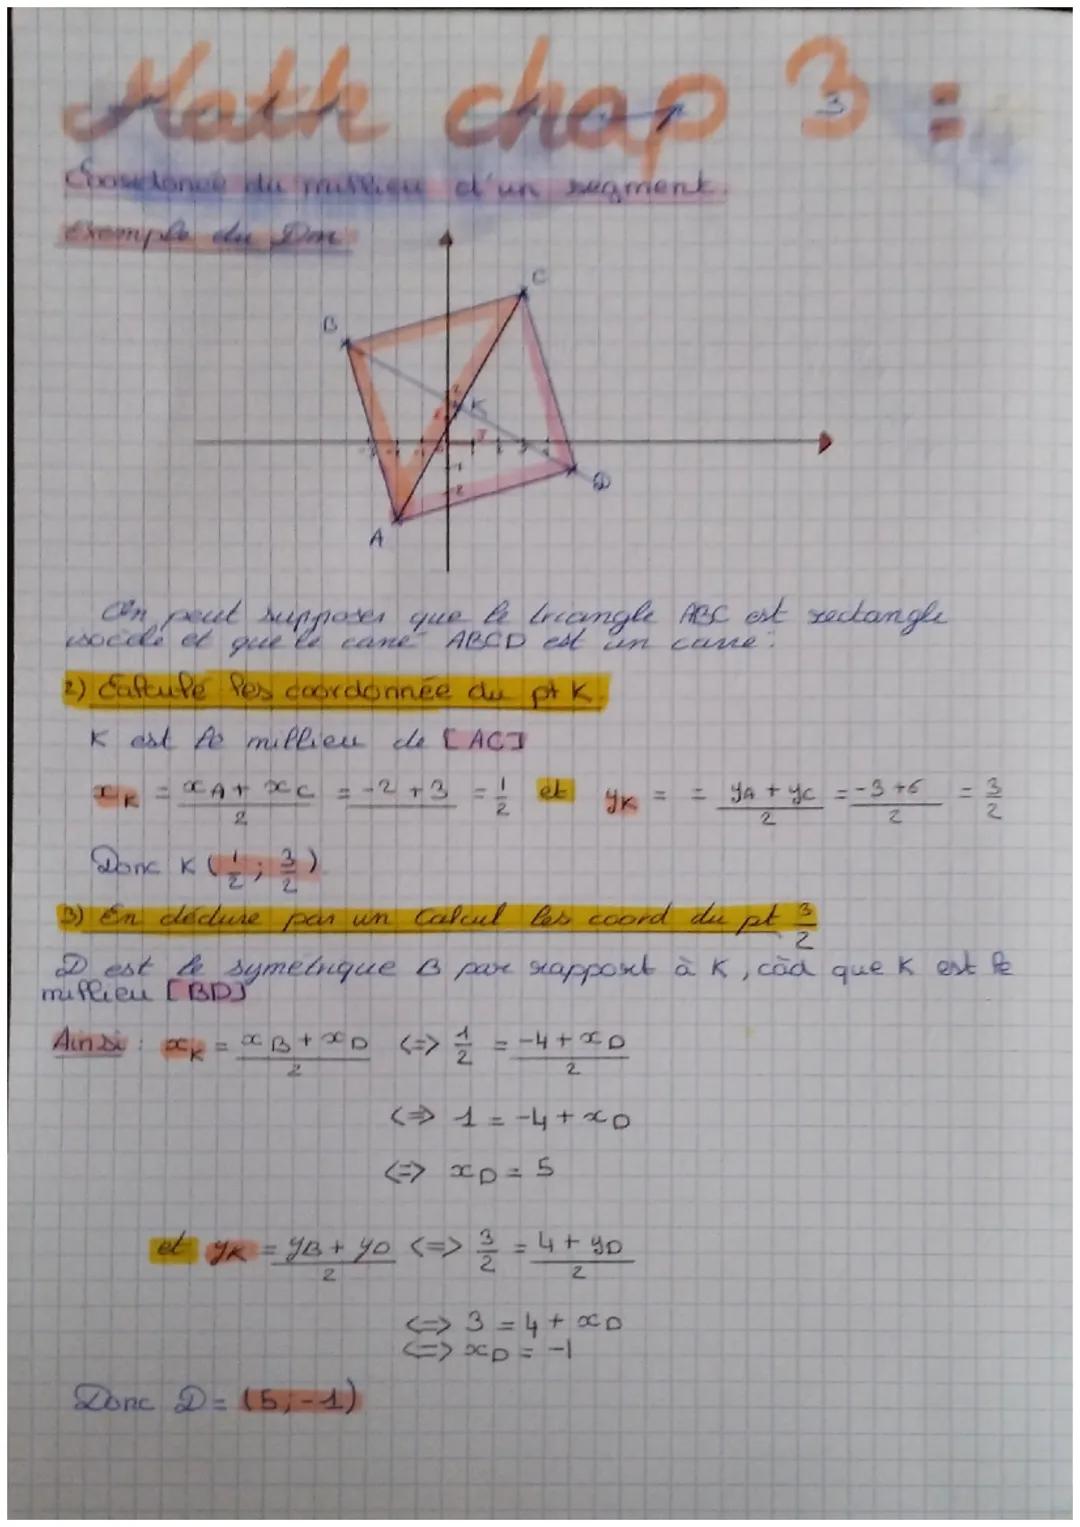 Math chap 3 :
Coordonée du millieu d'un segment.
Exemple du Dm
C
B
2
K
J
1
2
D
A
On peut supposer que le triangle ABC est rectangle
isocèle et que le carré ABCD est un carré.
2) Calculé les coordonnée du pt K.
K est le millieu de [AC]
xK = xA + xC / 2 = -2 + 3 / 2 = 1/2 et yK = = yA + yC / 2 = -3 + 6 / 2 = 3/2
Donc K (1/2 ; 3/2)
3) En déduire par un Calcul les coord du pt 3/2
D est le symétrique B par rapport à K, càd que K est le
millieu [BD]
Ainsi : xK = xB + xD / 2 <=> 1/2 = -4 + xD / 2
<=> 1 = -4 + xD
<=> xD = 5
et yK = yB + yD / 2 <=> 3/2 = 4 + yD / 2
<=> 3 = 4 + xD
<=> xD = -1
Donc D = (5 ; -1)